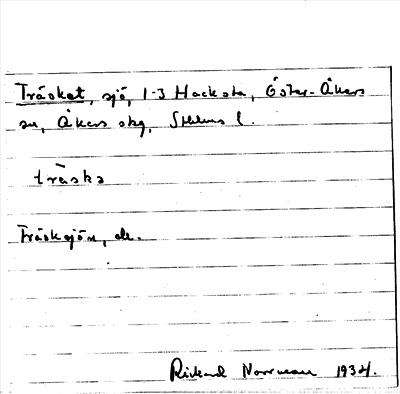 Träsket, sjö, 1-3 Hacksta, Öster-Åkers
sn, Åkers skg, Sthlms l.
träskə
Träsksjön, ds.
Rickard Norrman 1934.